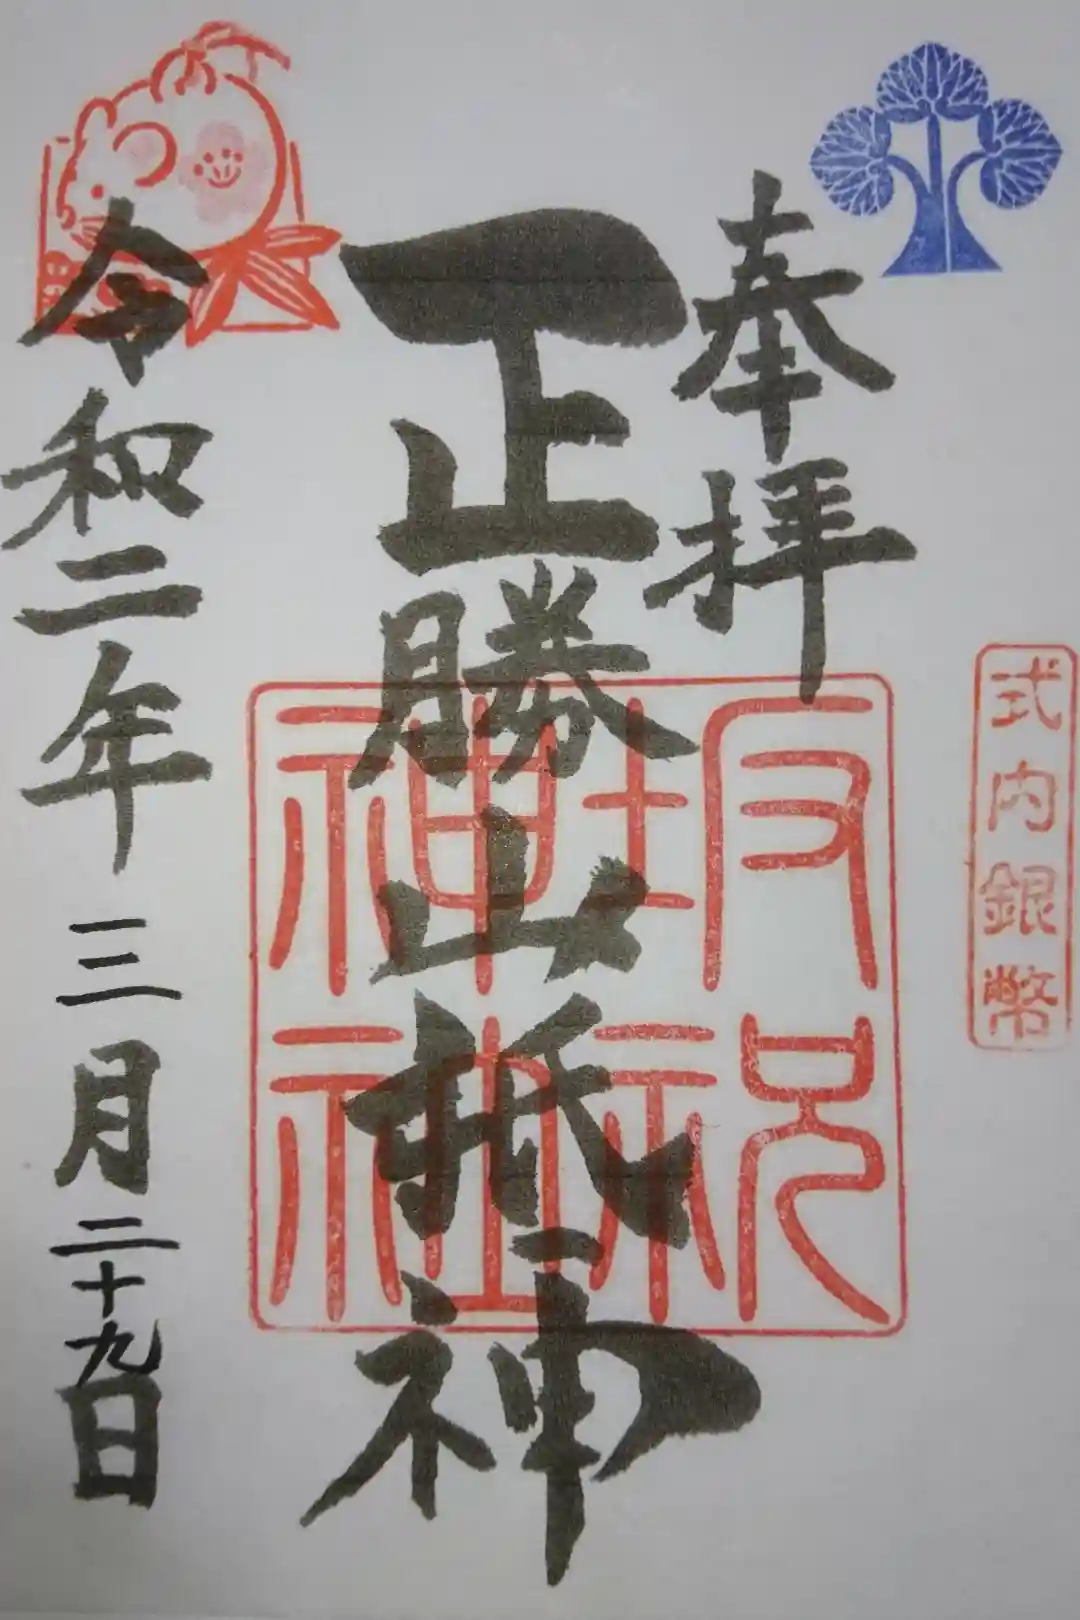 式内銀幣
奉拝
正勝山祇神
坂祝
神社
令和二年三月二十九日